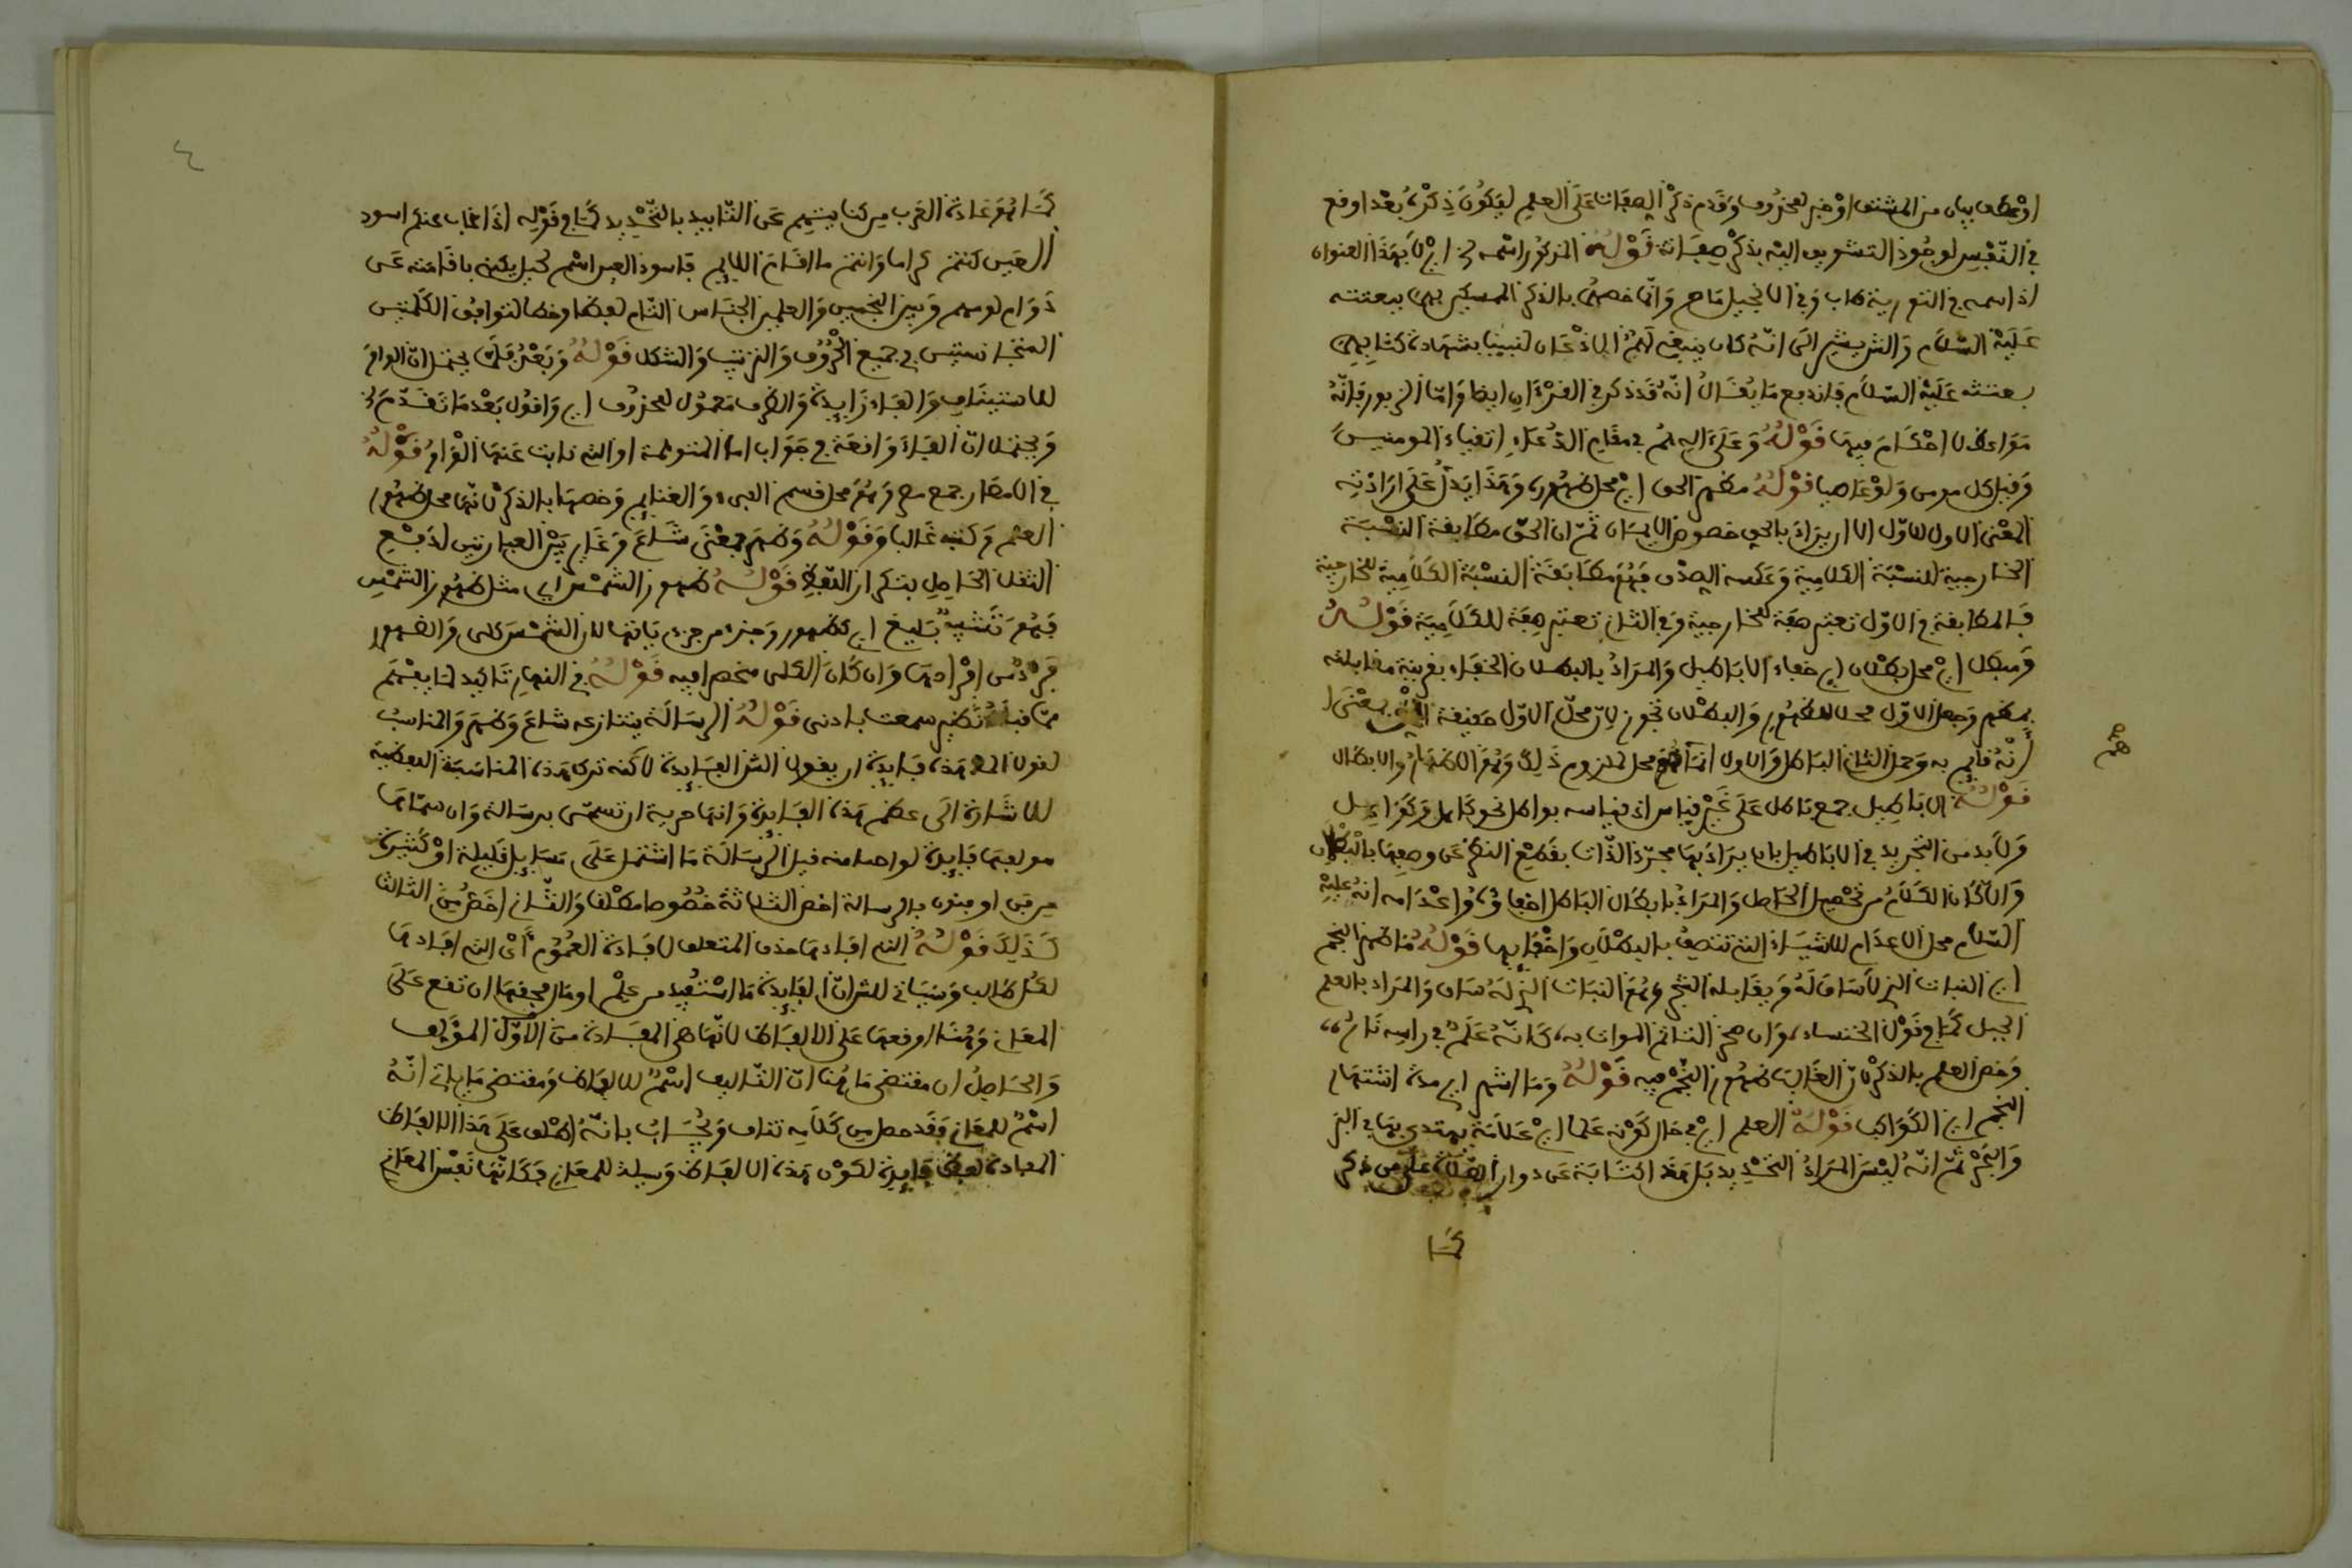 او عطف بيان من المشتق او خبر لمحذوف وقدم ذكر الصفات على العلم ليكون ذكره بعد اوقع
في النفس لوجود التشويق اليه بذكر صفاته قوله المذكور اسمه اي لا بهذا العنوان
اذ اسمه في التورية طاب وفي الانجيل ماح وانما خصهما بالذكر المبشرين ببعثته
عليه السلام والتبشير الى انه كان ينبغي لهم الاذعان لنبينا بشهادة كتابيهم
ببعثته عليه السلام فاندفع ما يقال انه قد ذكر في القرءان ايضا واما الزبور فانه
مواعظ لا احكام فيها قوله وعلى اله هم في مقام الدعاء اتقياء المومنين
وقيل كل مومن ولو عاصيا قوله مظهر الحق اي محل ظهوره وهذا يدل على ارادته
المعنى الاول للاول الا ان يراد بالحق خصوص الايمان ثم ان الحق مطابقة النسبة
الخارجية للنسبة الكلامية وعكسه الصدق فهو مطابقة النسبة الكلامية للخارجية
فالمطابقة في الاول تعتبر صفة للخارجية وفي الثاني تعتبر صفة للكلامية قوله
ومبطل اي محل بطلان اي خفاء الاباطيل والمراد بالبطلان الخفاء بقرينة مقابلته
بمظهر وجعل الاول محلا للظهور والبطلان تجوز لان محل الاول حقيقة بمعنى
انه قايم به وحمل الثاني الباطل والاول انما هو محل لملزوم ذلك وهو الاظهار والابطال
قوله الاباطيل جمع باطل على غير قياس اذ قياسه بواطل نحو كاهل وكواهل
ولا بد من التجريد في الاباطيل بان يراد بها مجرد الذات بقطع النظر عن وصفها بالبطلان
والا كان الكلام من تحصيل الحاصل والمراد بابطال الباطل اخفاؤه واعدامه انه عليه
السلام محل الاعدام للاشياء التي تتصف بالبطلان واخفائها قوله ما ظهر النجم
اي النبات الذي لا ساق له ويقابله الشجر وهو النبات الذي له ساق والمراد بالعلم
الجبل كما في قول الخنساء وان صخر التاتم الهداة به كانه علم في راسه نار
وخص العلم بالذكر لان الغالب ظهور النجم فيه قوله وما اشتهر اي مدة اشتهار
النجم اي الكواكب قوله العلم اي في حال كونه علما اي علامة يهتدى بها في البر
والبحر ثم انه ليس المراد التحديد بل هذا كناية عن دوام الصلاة على من ذكر
كما
كما هو عادة العرب من كنايتهم عن التابيد بالتحديد كما في قوله اذا غاب عنكم اسود
العين كنتم كراما وانتم ما اقام الاليم فاسود العين اسم لجبل يكنى باقامته عن
دوام لومهم وبين النجمين والعلمين الجناس التام لفظا وخطا لتوافق الكلمتين
المتجانستين في جميع الحروف والترتيب والشكل قوله وبعد فلما يحتمل ان الواو
للاستيناف والفاء زايدة والظرف معمول لمحذوف اي واقول بعد ما تقدم
ويحتمل ان الفاء واقعة في جواب اما المتوهمة او التي نابت عنها الواو قوله
في الامصار جمع مصر وهو محل قسم الفيء والغنايم وخصها بالذكر لانها محل ظهور
العلم وكتبه غالبا وقوله وظهر بمعنى شاع وغاير بين العبارتين لدفع
الثقل الحاصل بتكرار اللفظ قوله ظهور الشمس اي مثل ظهور الشمس
فهو تشبيه بليغ اي كظهور وجزء من جزء يانها لان الشمس كلي والظهور
فرد من افرادها وان كان الكلي منحصرا فيه قوله في النهار تاكيد لما يفهم
مما قبله نظير سمعت باذني قوله الرسالة يتنازعه شاع وظهر والمناسب
لقول هذه فايدة ان يقول الفايدة لاكنه ترك هذه المناسبة اللفظية
للاشارة الى عظم هذه الفايدة وانها حرية ان تسمى برسالة وان سماها
مولفها فايدة تواضعا منه قيل الرسالة ما اشتمل على مسايل قليلة او كثيرة
من فن او فنون بالرسالة اخص الثلاثة خصوصا مطلقا والثاني اخص من الثالث
كذلك قوله التي افادها حذف المتعلق لافادة العموم اي التي افادها
لكل طالب وسياتي للشران الفايدة ما استفيد من علم او مال فحقها ان تقع على
المعاني وهنا اوقعها على الالفاظ لانها هي المفادة من الاول المولف
والحاصل ان مقتضى ما هنا ان التاليف اسم للالفاظ ومقتضى ما ياتي انه
اسم للمعاني فقد حصل من كلامه تناف ويجاب بانه اطلق على هذا الالفاظ
المفادة لفظ فايدة لكون هذه الالفاظ وسيلة للمعاني فكانها نفس المعاني